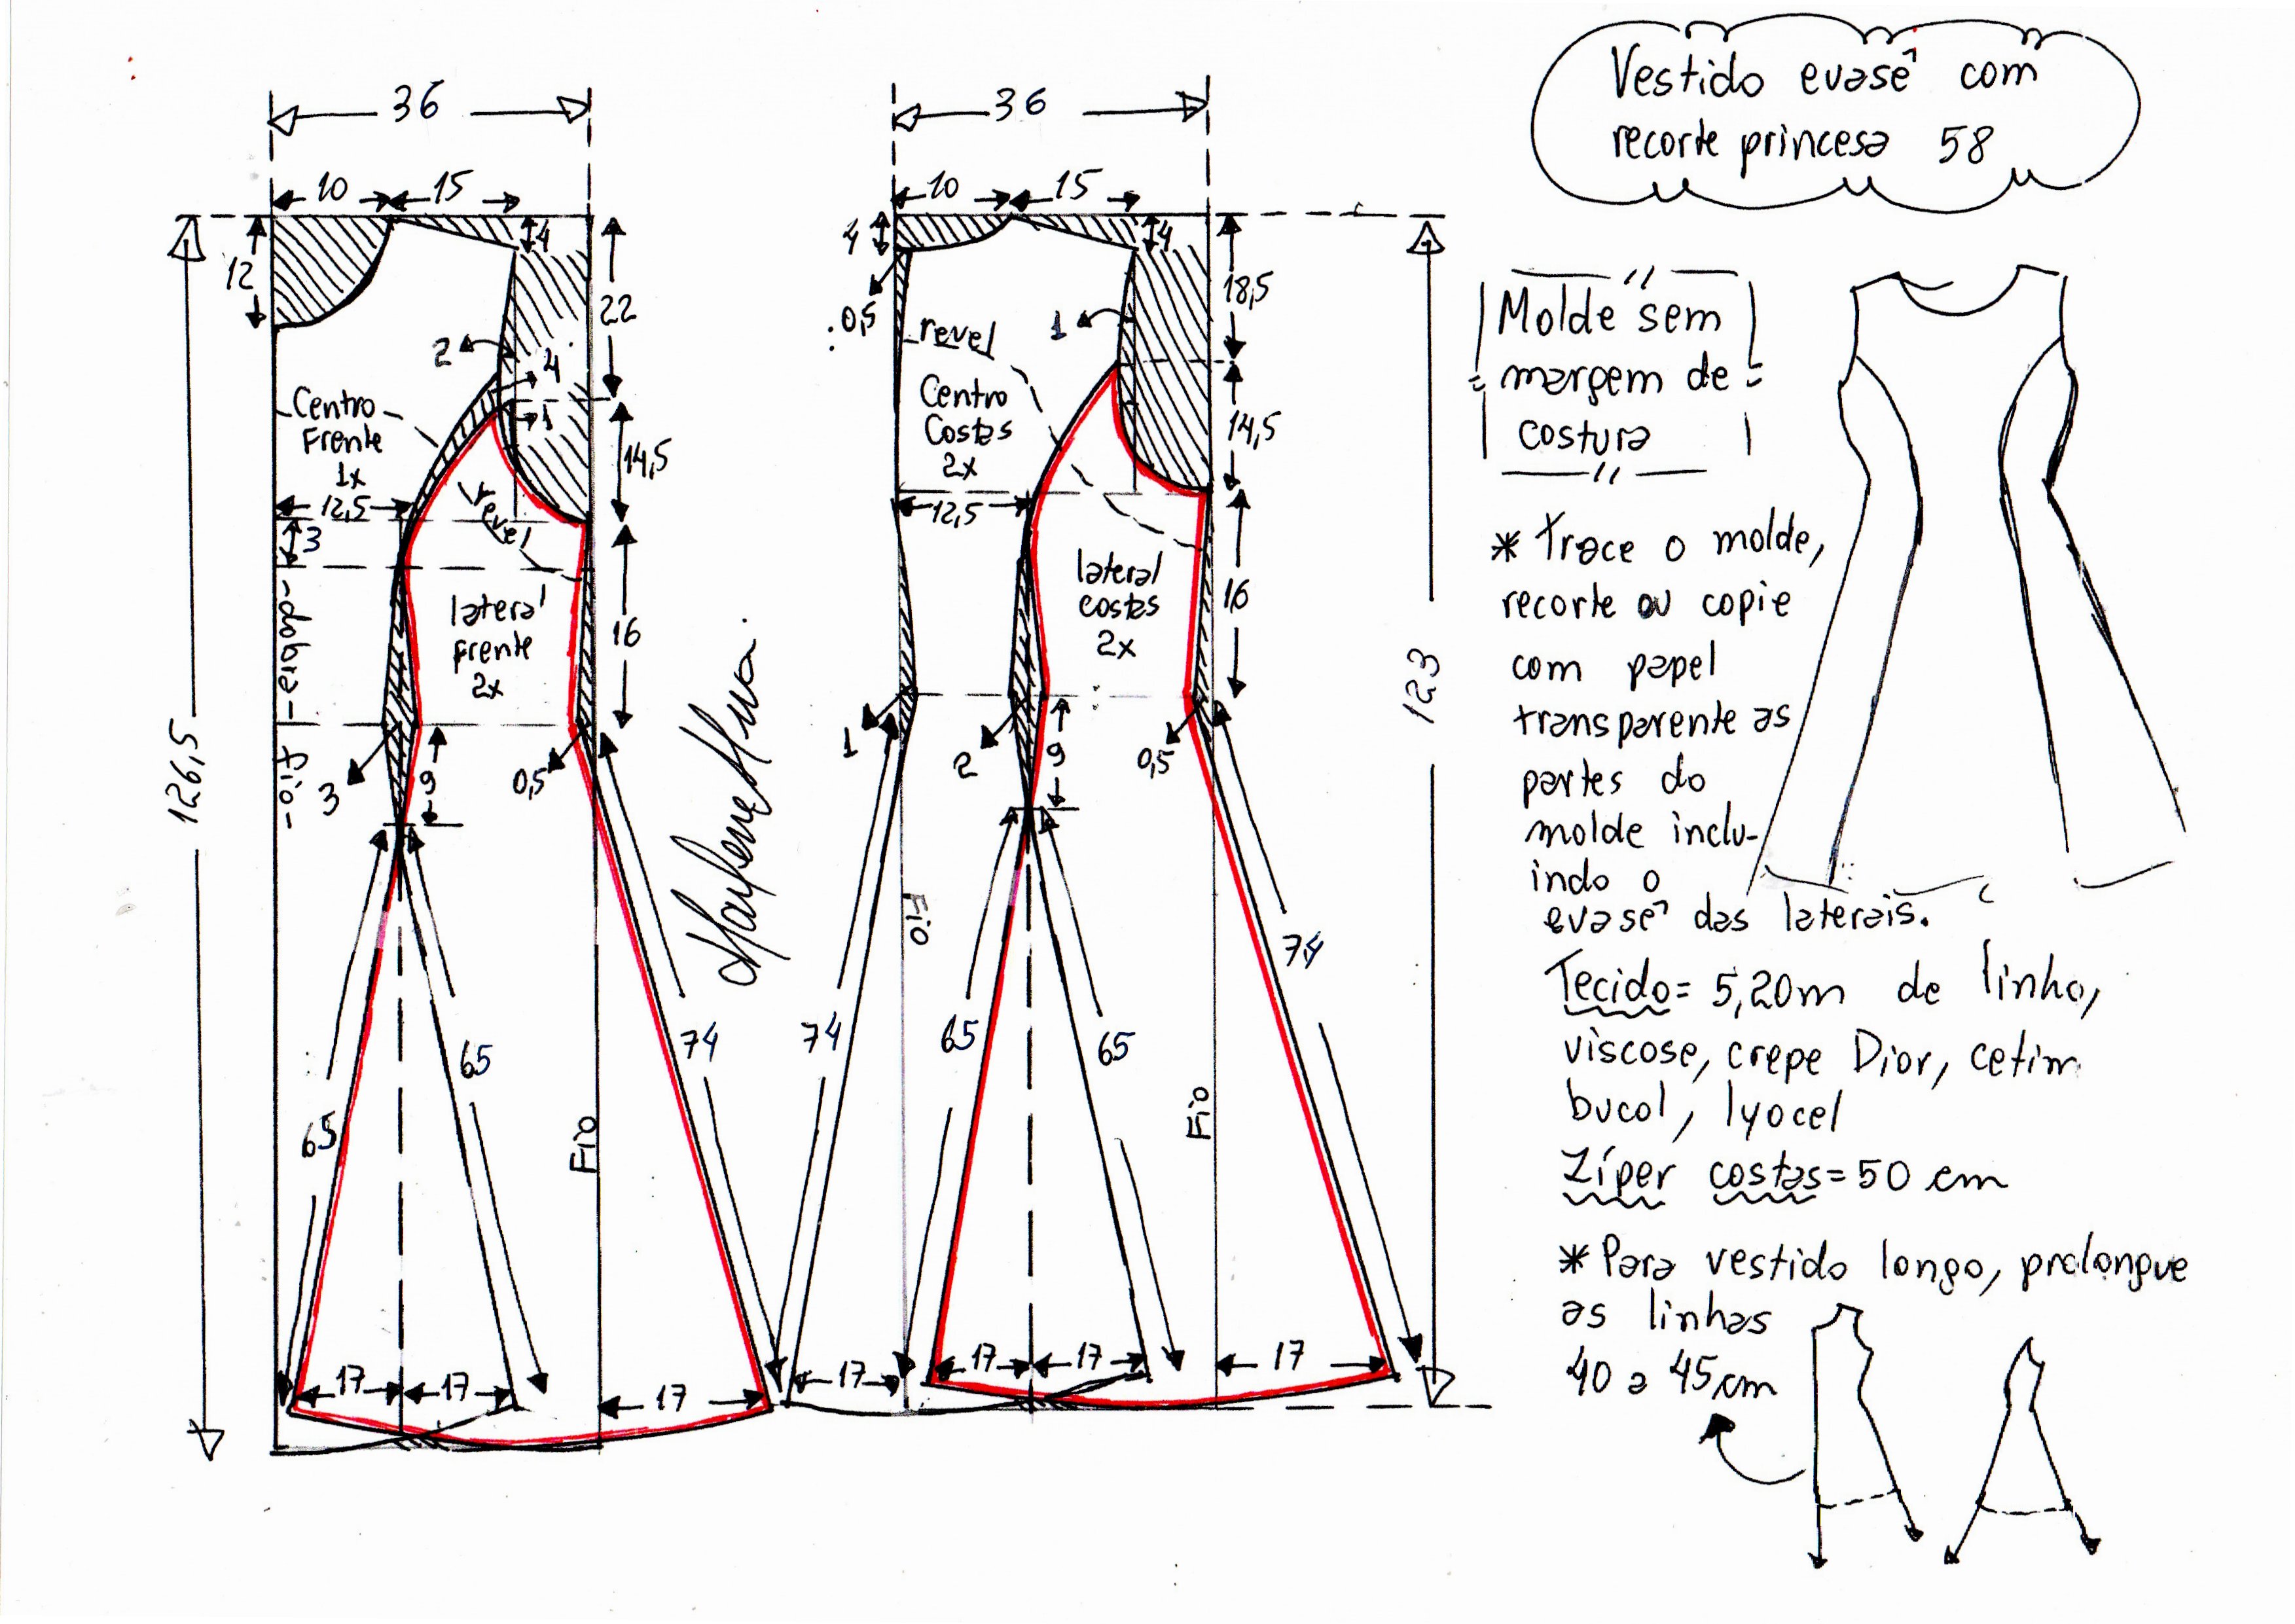 Vestido evasê com
recorte princesa 58
36
10 15
12
4
22
2
4
1
Centro
Frente
1x
14,5
12,5
3
revel
dobra
lateral
frente
2x
16
fio
3
9
0,5
126,5
65
65
74
Fio
17 17
17
36
10 15
4
4
0,5
18,5
revel
1
Centro
Costas
2x
14,5
12,5
lateral
costas
2x
16
1
2
9
0,5
123
Fio
74
65
65
74
Fio
17
17 17
17
Molde sem
margem de
costura
* Trace o molde,
recorte ou copie
com papel
transparente as
partes do
molde inclu-
indo o
evasê das laterais.
Tecido = 5,20m de linho,
viscose, crepe Dior, cetim
bucol, lyocel
Zíper costas = 50 cm
* Para vestido longo, prolongue
as linhas
40 a 45cm